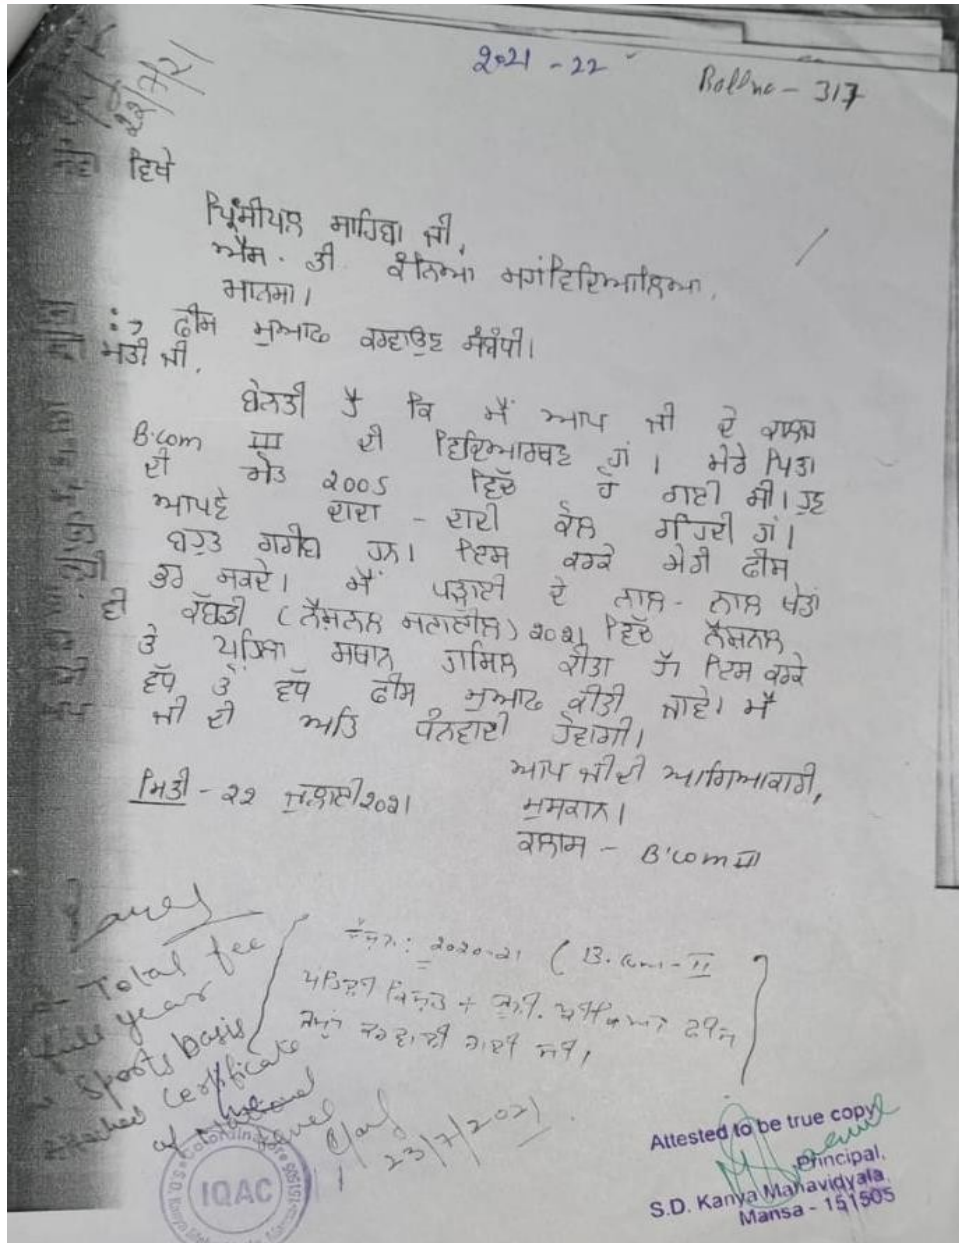 2021 - 22
Rollno - 317
22/7/21
ਵਿਖੇ
ਪ੍ਰਿੰਸੀਪਲ ਸਾਹਿਬਾ ਜੀ,
ਐਸ. ਡੀ. ਕੰਨਿਆ ਮਹਾਂਵਿਦਿਆਲਿਆ,
ਮਾਨਸਾ।
ਫੀਸ ਮੁਆਫ ਕਰਵਾਉਣ ਸੰਬੰਧੀ।
ਮਤੀ ਜੀ,
ਬੇਨਤੀ ਹੈ ਕਿ ਮੈਂ ਆਪ ਜੀ ਦੇ ਕਾਲਜ
B.com III ਦੀ ਵਿਦਿਆਰਥਣ ਹਾਂ। ਮੇਰੇ ਪਿਤਾ
ਦੀ ਮੌਤ 2005 ਵਿੱਚ ਹੋ ਗਈ ਸੀ। ਹੁਣ
ਆਪਣੇ ਦਾਦਾ - ਦਾਦੀ ਕੋਲ ਰਹਿੰਦੀ ਹਾਂ।
ਬਹੁਤ ਗਰੀਬ ਹਨ। ਇਸ ਕਰਕੇ ਮੇਰੀ ਫੀਸ
ਭਰ ਸਕਦੇ। ਮੈਂ ਪੜ੍ਹਾਈ ਦੇ ਨਾਲ - ਨਾਲ ਖੇਡਾਂ
ਦੀ ਕੱਬਡੀ (ਨੈਸ਼ਨਲ ਸਟਾਈਲ) 2021 ਵਿੱਚ ਨੈਸ਼ਨਲ
ਤੇ ਪਹਿਲਾ ਸਥਾਨ ਹਾਸਿਲ ਕੀਤਾ ਹੈ ਇਸ ਕਰਕੇ
ਵੱਧ ਤੋਂ ਵੱਧ ਫੀਸ ਮੁਆਫ ਕੀਤੀ ਜਾਵੇ। ਮੈਂ
ਜੀ ਦੀ ਅਤਿ ਧੰਨਵਾਦੀ ਹੋਵਾਗੀ।
ਆਪ ਜੀ ਦੀ ਆਗਿਆਕਾਰੀ,
ਮਿਤੀ - 22 ਜੁਲਾਈ 2021
ਮੁਸਕਾਨ।
ਕਲਾਸ - B'com III
Total fee
full year
Sports basis
Attached certificate
of National
level
2020-21 (B.Com-II
ਪਹਿਲੀ ਕਿਸ਼ਤ + ਯੂਨੀ. ਪ੍ਰੀਖਿਆ ਫੀਸ
ਜਮ੍ਹਾਂ ਕਰਵਾਈ ਗਈ ਸੀ।
23/7/2021
IQAC
Attested to be true copy
Principal,
S.D. Kanya Mahavidyala
Mansa - 151505